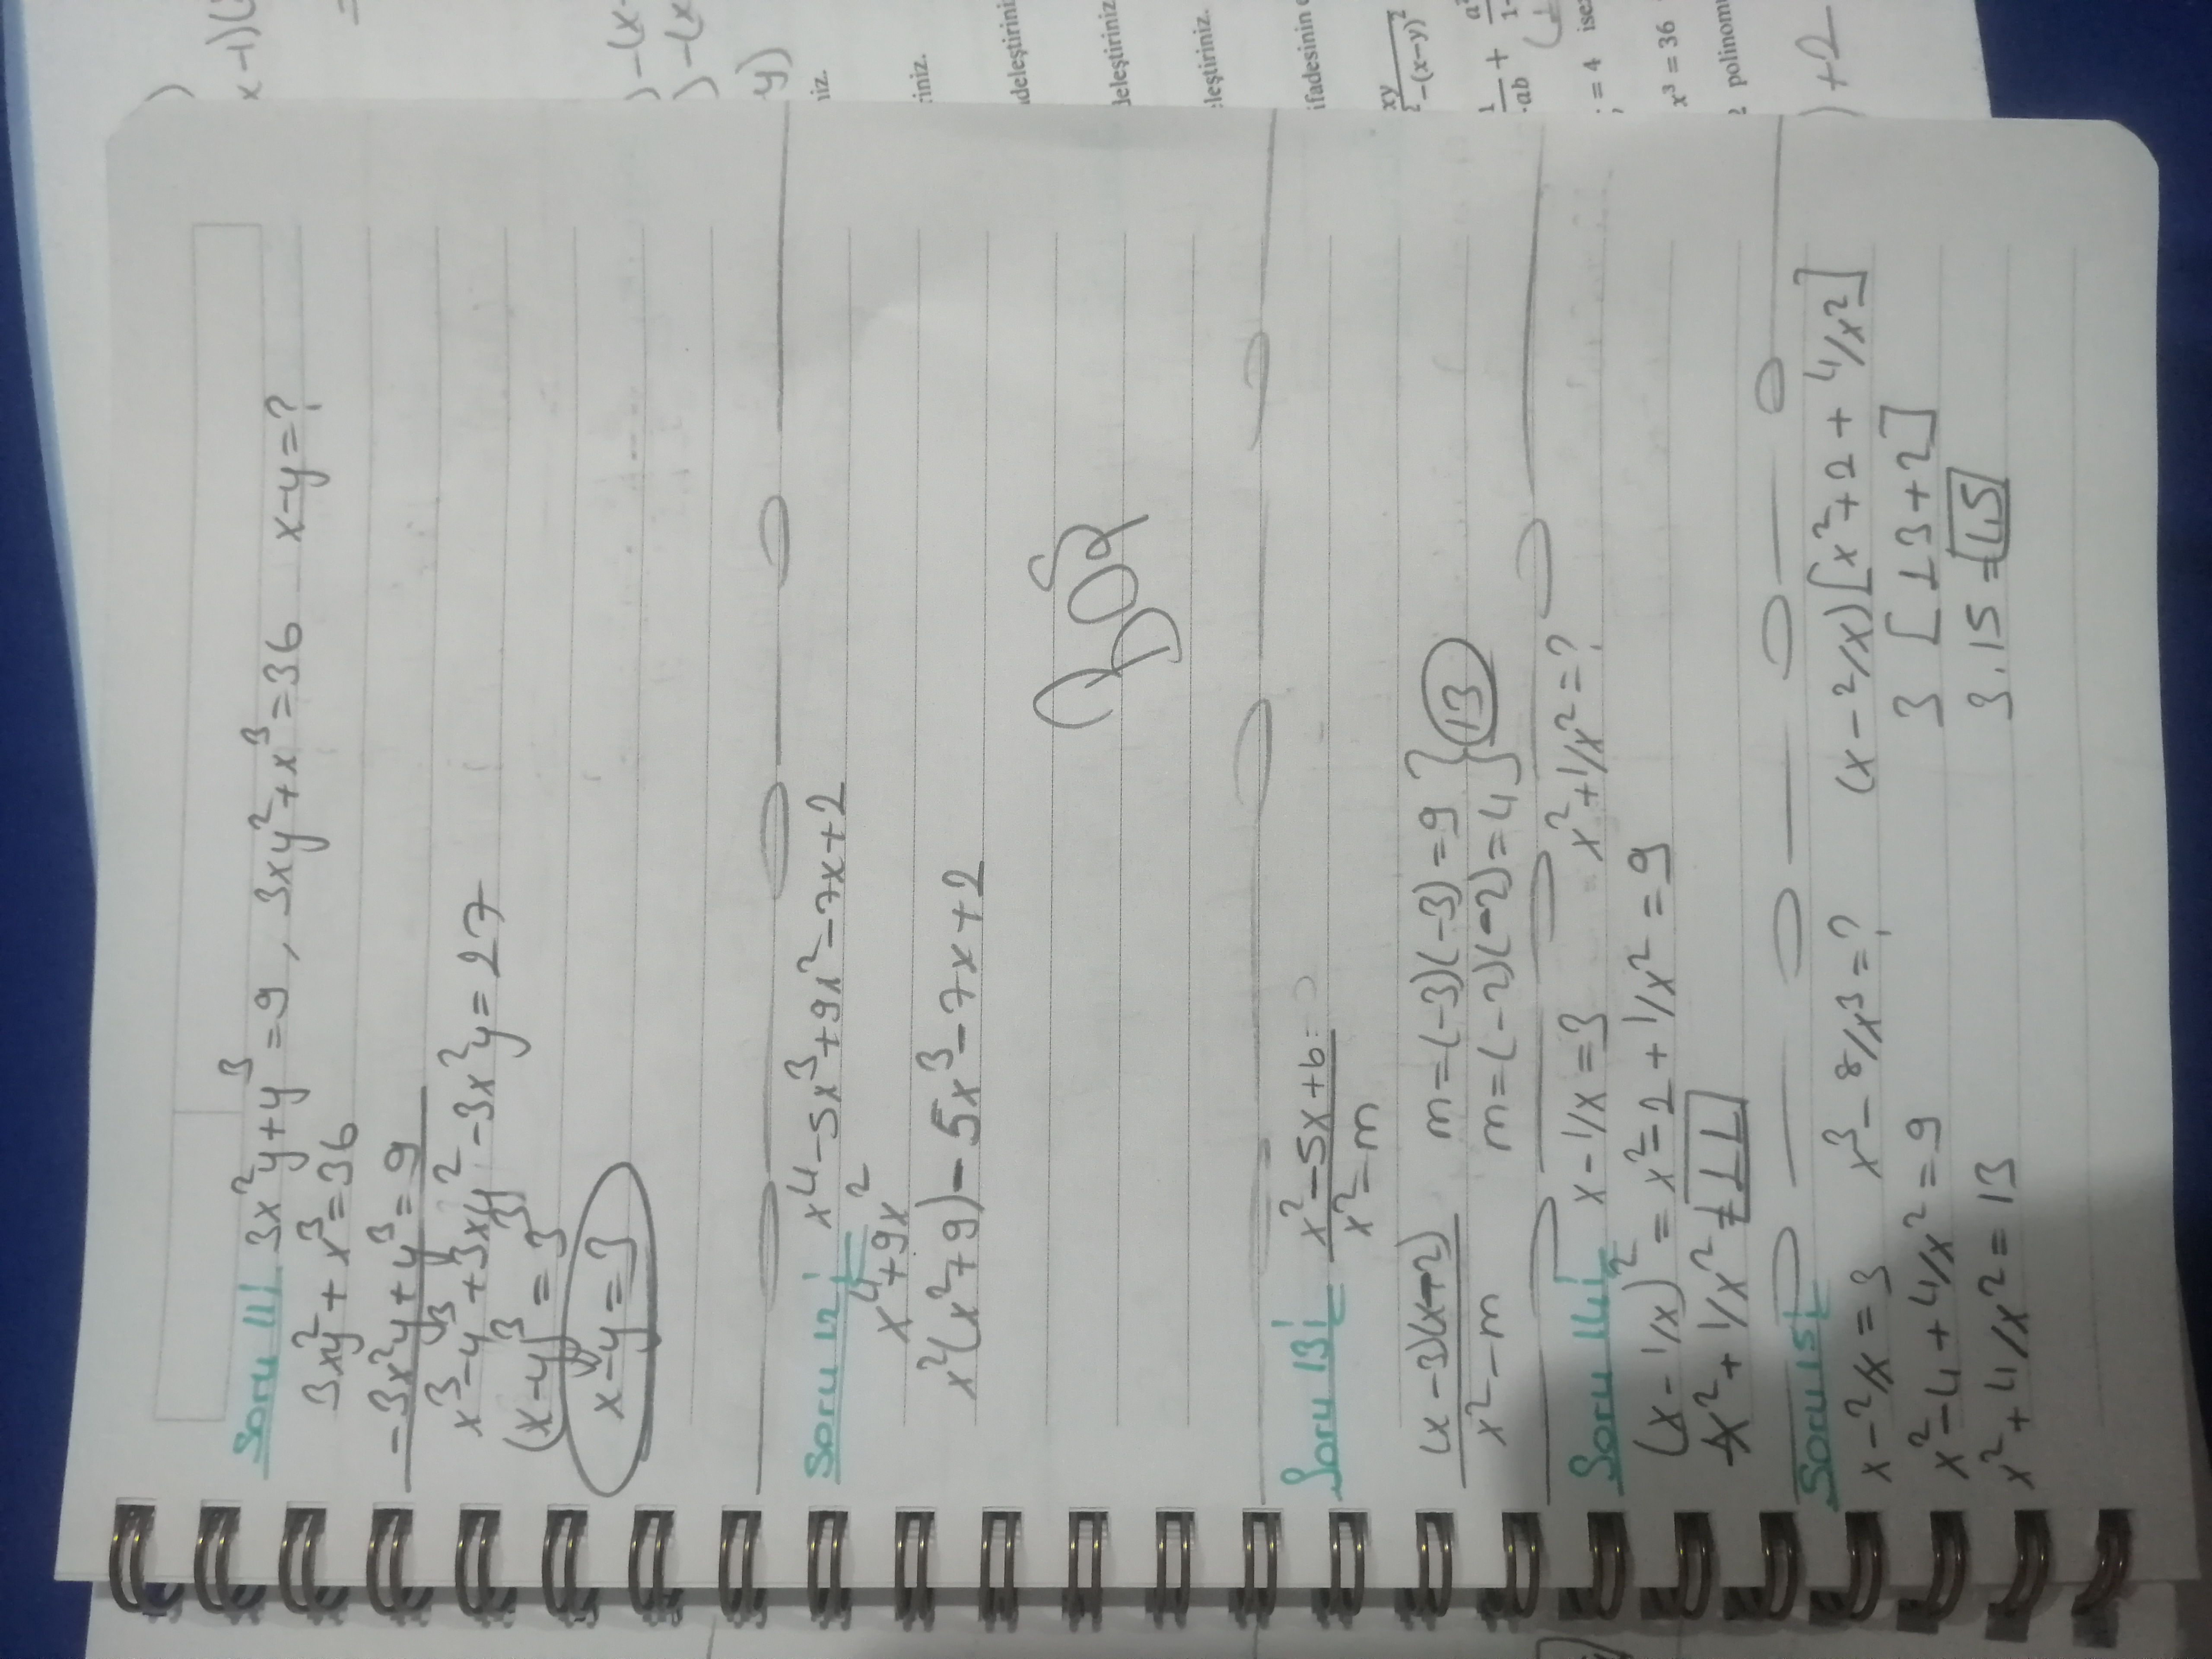 Soru 11) 3x²y+y³=9, 3xy²+x³=36 x-y=?
3xy²+x³=36
-3x²y+y³=9
x³-y³+3xy²-3x²y=27
(x-y)³=3³
x-y=3
Soru 12) x⁴-5x³+9x²-7x+2
x⁴+9x²
x²(x²+9)-5x³-7x+2
Boş
Soru 13) x²-5x+6=
x²-m
(x-3)(x-2) m=(-3)(-3)=9
x²-m m=(-2)(-2)=4 } 13
Soru 14) x-1/x=3 x²+1/x²=?
(x-1/x)²=x²-2+1/x²=9
x²+1/x²=11
Soru 15)
x-2/x=3 x³-8/x³=? (x-2/x)[x²+2+4/x²]
x²-4+4/x²=9 3[13+2]
x²+4/x²=13 3.15=45
x-1)(
)-(x-
)-(x
y)
iz.
riniz.
deleştirini
deleştiriniz
leştiriniz.
ifadesinin
xy
²-(x-y)²
1
ab
+
a²
1-
; = 4 ise
x³ = 36
2 polinomu
)+2